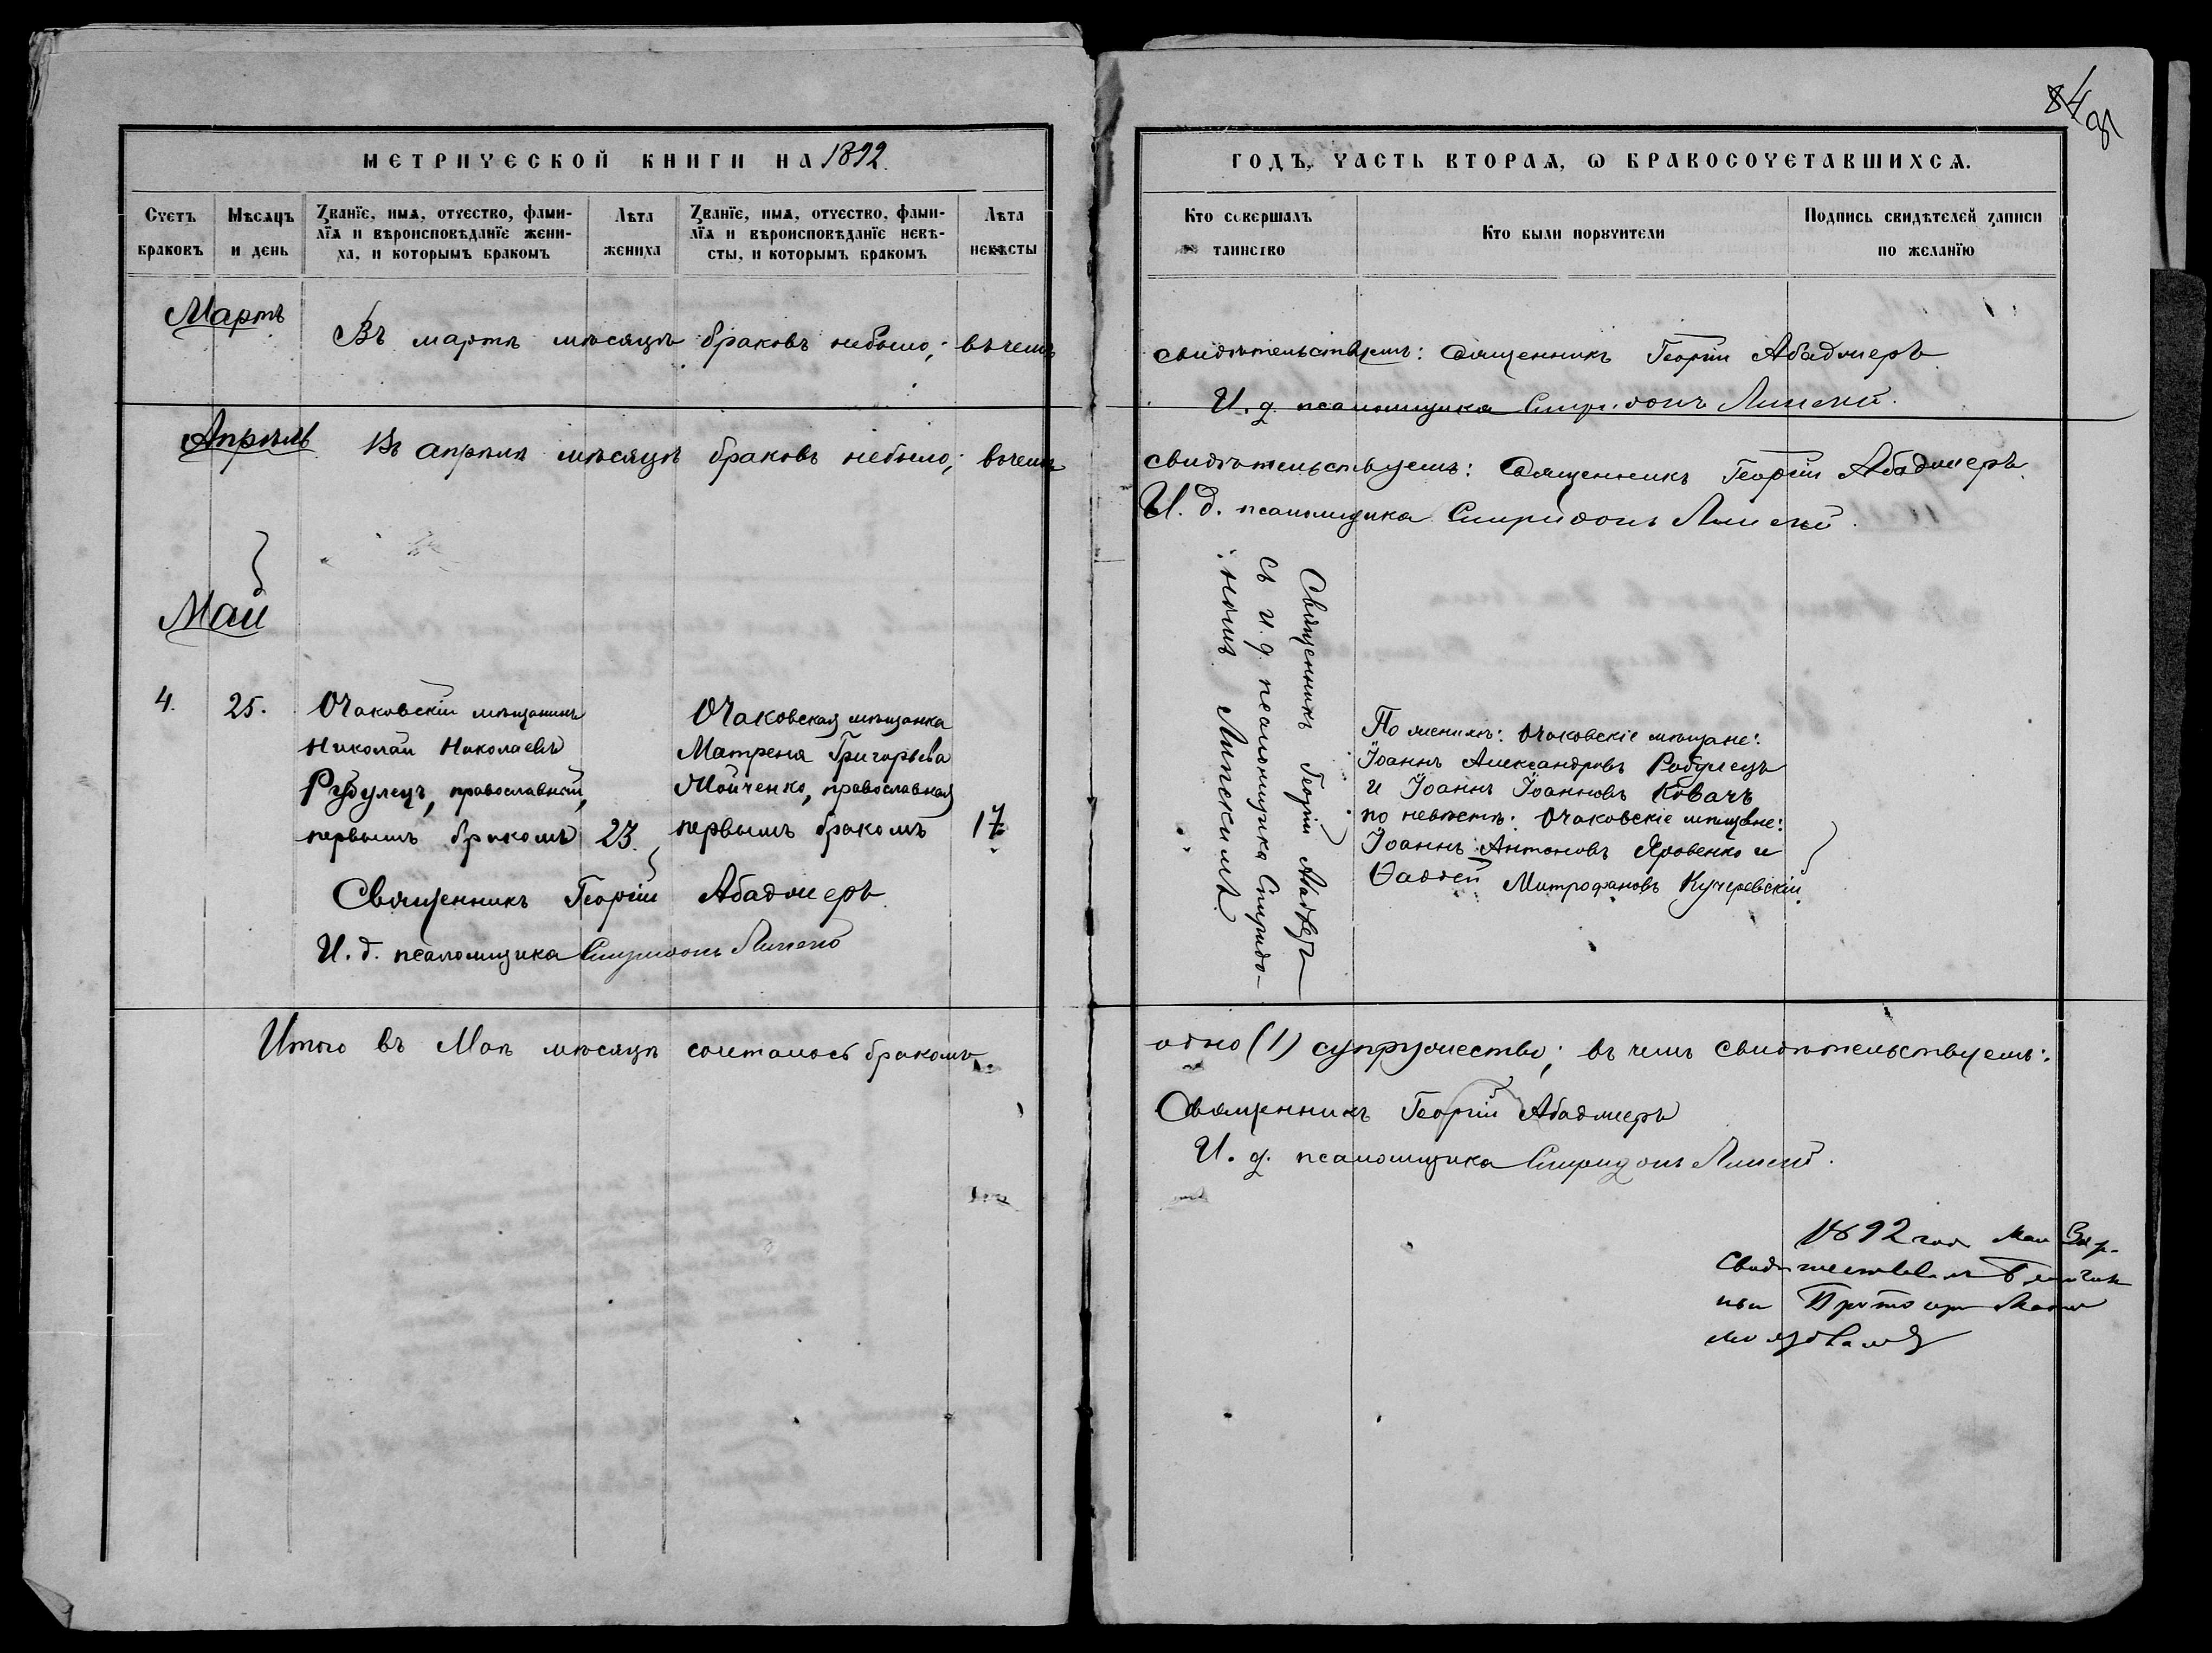 84
МЕТРИЧЕСКОЙ КНИГИ НА 1892
ГОДЪ, ЧАСТЬ ВТОРАѦ, Ѡ БРАКОСОЧЕТАВШИХСѦ.
Счетъ браковъ
Мѣсѧцъ и день
Званїе, имѧ, отчество, фами-
лїѧ и вѣроисповѣданїе жени-
ха, и которымъ бракомъ
Лѣта жениха
Званїе, имѧ, отчество, фами-
лїѧ и вѣроисповѣданїе невѣ-
сты, и которымъ бракомъ
Лѣта невѣсты
Кто совершалъ таинство
Кто были порꙋчители
Подпись свидѣтелей записи
по желанїю
Мартъ
Въ мартѣ мѣсяцѣ браковъ небыло; въ чемъ
свидѣтельствуемъ: Священникъ Георгій Абаджеръ
И. д. псаломщика Спиридонъ Липскій.
Апрѣль
Въ апрѣлѣ мѣсяцѣ браковъ небыло; въ чемъ
свидѣтельствуемъ: Священникъ Георгій Абаджеръ.
И. д. псаломщика Спиридонъ Липскій.
Май
4.
25.
Очаковскій мѣщанинъ
Николай Николаевъ
Рубулецъ, православный,
первымъ бракомъ
23.
Очаковская мѣщанка
Матрена Григорьева
Мойченко, православная
первымъ бракомъ
17
Священникъ Георгій Абаджеръ
И. д. псаломщика Спиридонъ Липскій
Священникъ Георгій Абаджеръ
съ и. д. псаломщика Спиридо-
номъ Липскимъ.
По женихѣ: Очаковскіе мѣщане:
Іоаннъ Александровъ Рабулецъ
и Іоаннъ Іоанновъ Ковачъ
по невѣстѣ: Очаковскіе мѣщане:
Іоаннъ Антоновъ Яровенко и
Ѳаддей Митрофановъ Кучеревскій.
Итого въ Маѣ мѣсяцѣ сочеталось бракомъ
одно (1) супружество; въ чемъ свидѣтельствуемъ:
Священникъ Георгій Абаджеръ
И. д. псаломщика Спиридонъ Липскій.
1892 года Мая